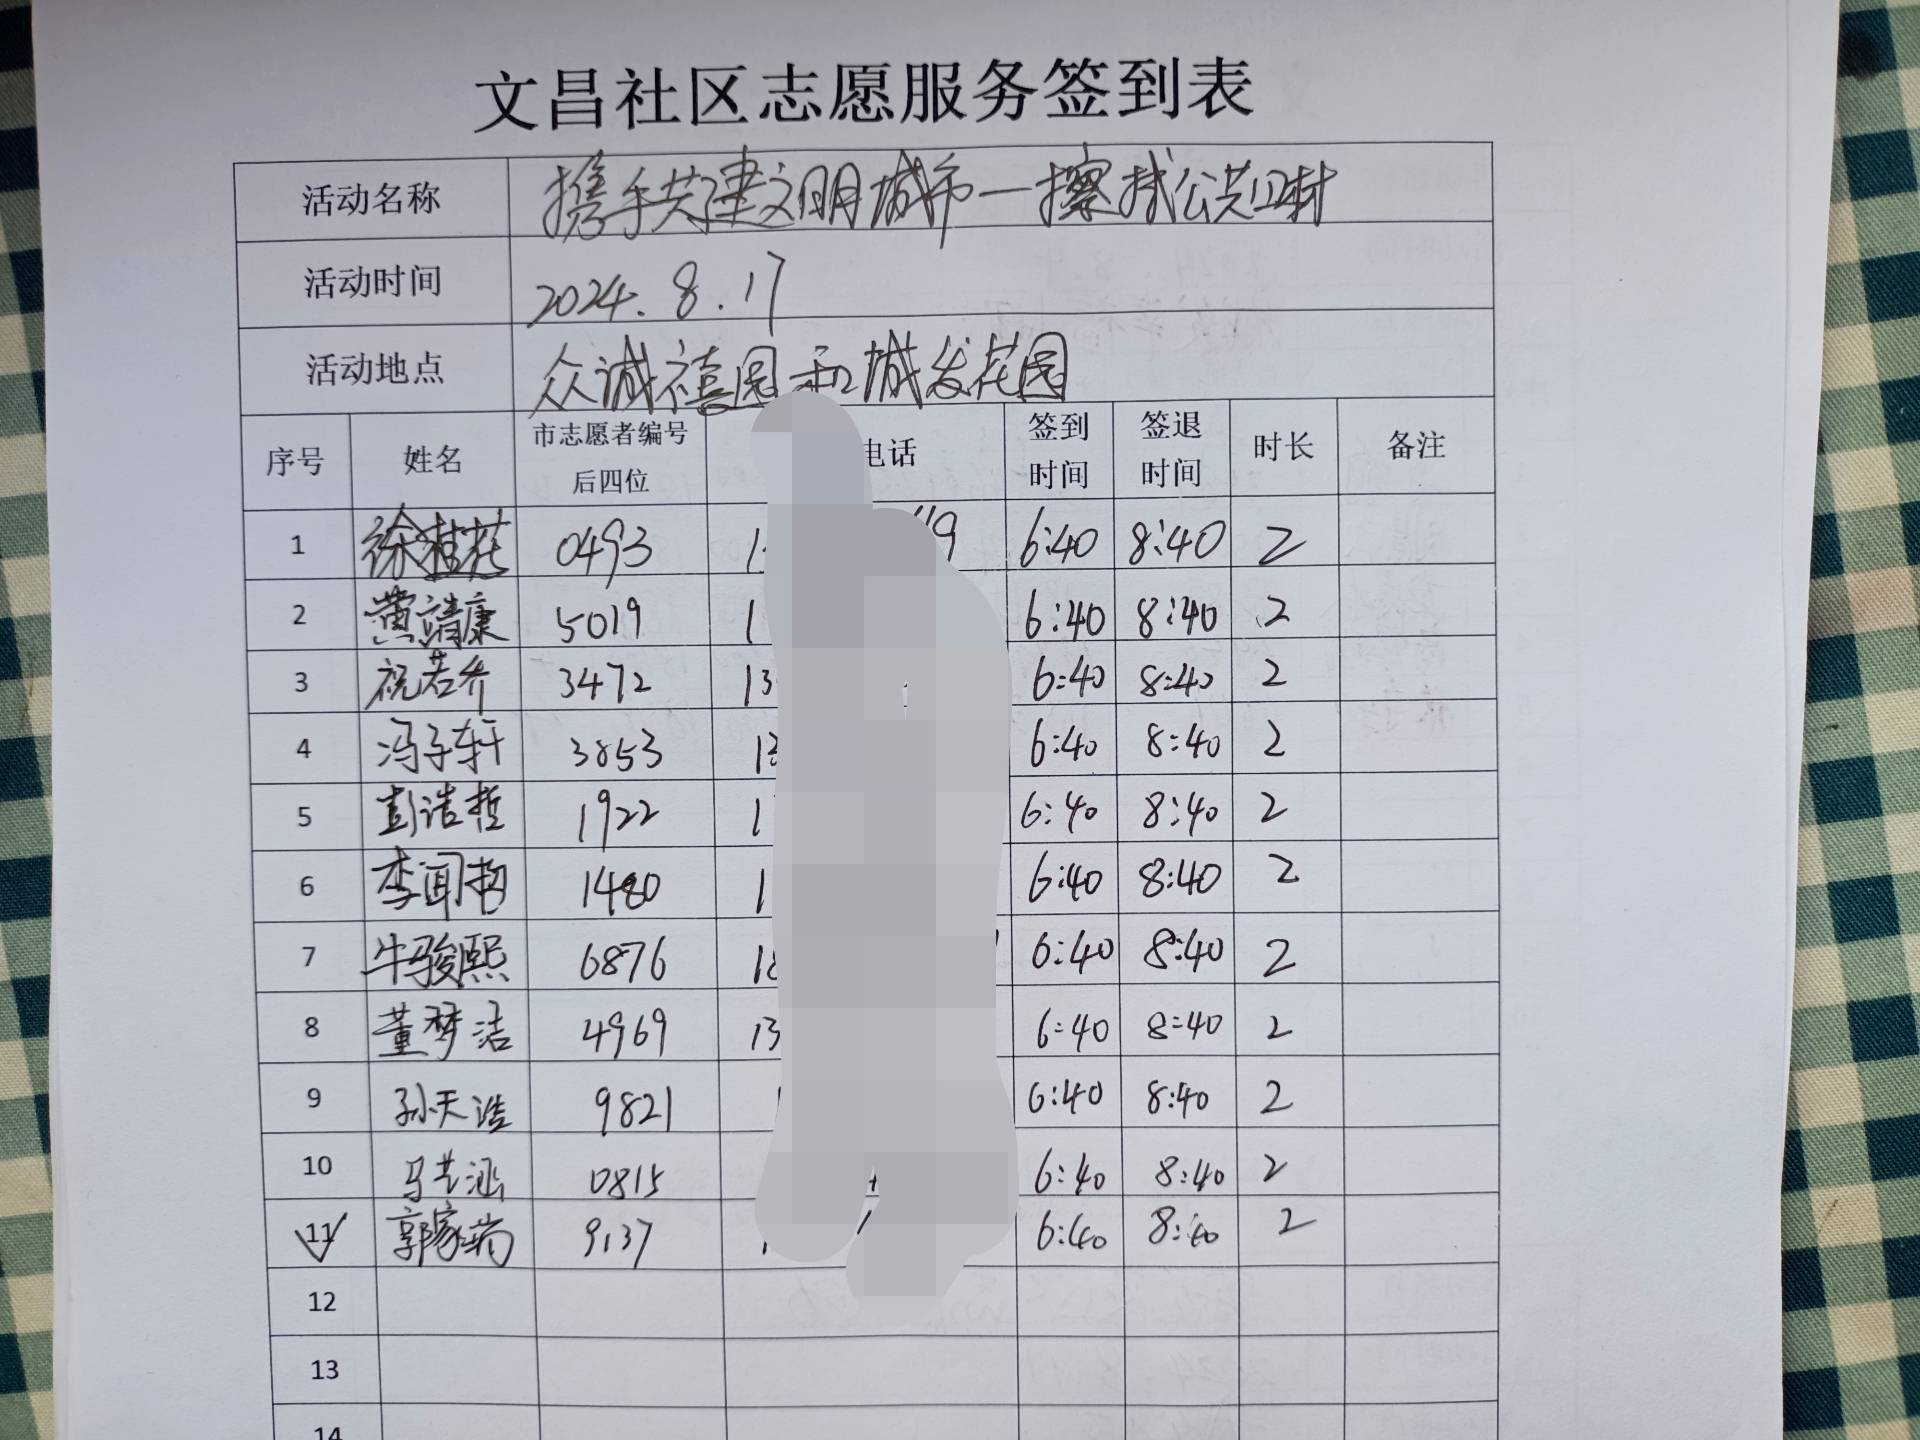 文昌社区志愿服务签到表
活动名称 携手共建文明城市一擦拭公共卫材
活动时间 2024.8.17
活动地点 众诚禧园和城发花园
序号 姓名 市志愿者编号后四位 电话 签到时间 签退时间 时长 备注
1 徐桂花 0493 6:40 8:40 2
2 黄靖康 5019 6:40 8:40 2
3 祝若乔 3472 13 6:40 8:40 2
4 冯子轩 3853 13 6:40 8:40 2
5 彭浩哲 1922 1 6:40 8:40 2
6 李闻韵 1480 1 6:40 8:40 2
7 牛骏熙 6876 18 6:40 8:40 2
8 董梦洁 4969 13 6:40 8:40 2
9 孙天浩 9821 6:40 8:40 2
10 马艺涵 0815 6:40 8:40 2
11 郭家 9137 6:40 8:40 2
12
13
14